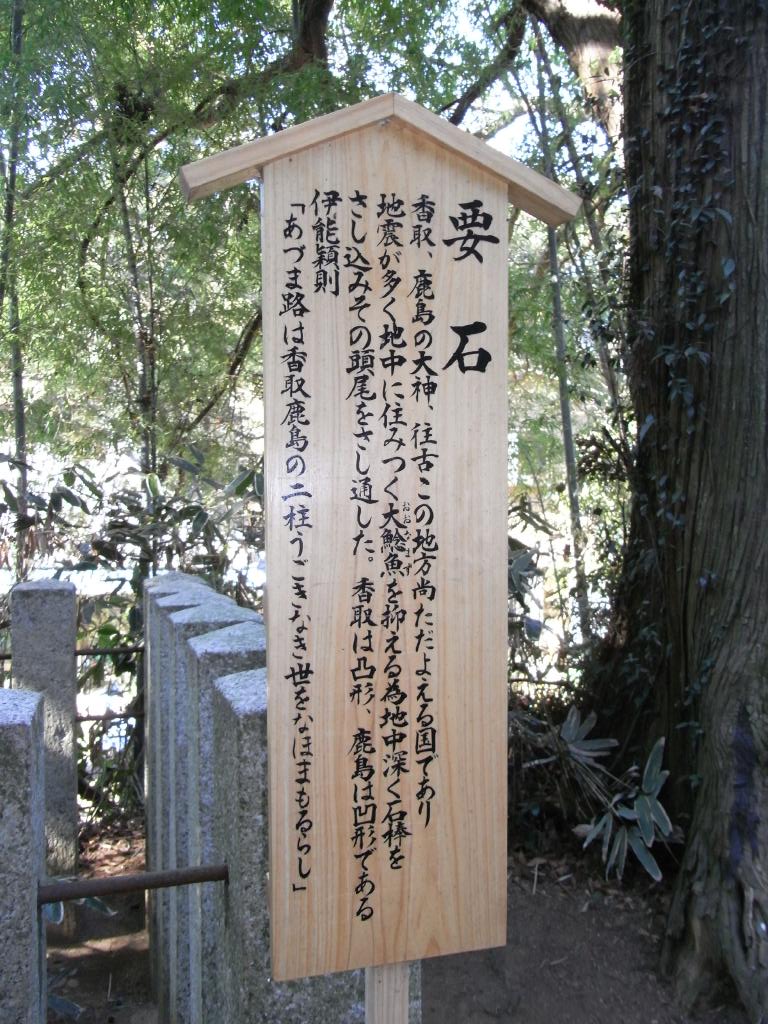 要石
香取、鹿島の大神、往古この地方尚ただよえる国であり
地震が多く地中に住みつく大鯰魚を抑える為地中深く石棒を
おおなまず
さし込みその頭尾をさし通した。香取は凸形、鹿島は凹形である
伊能穎則
「あづま路は香取鹿島の二柱うごきなき世をなほまもるらし」